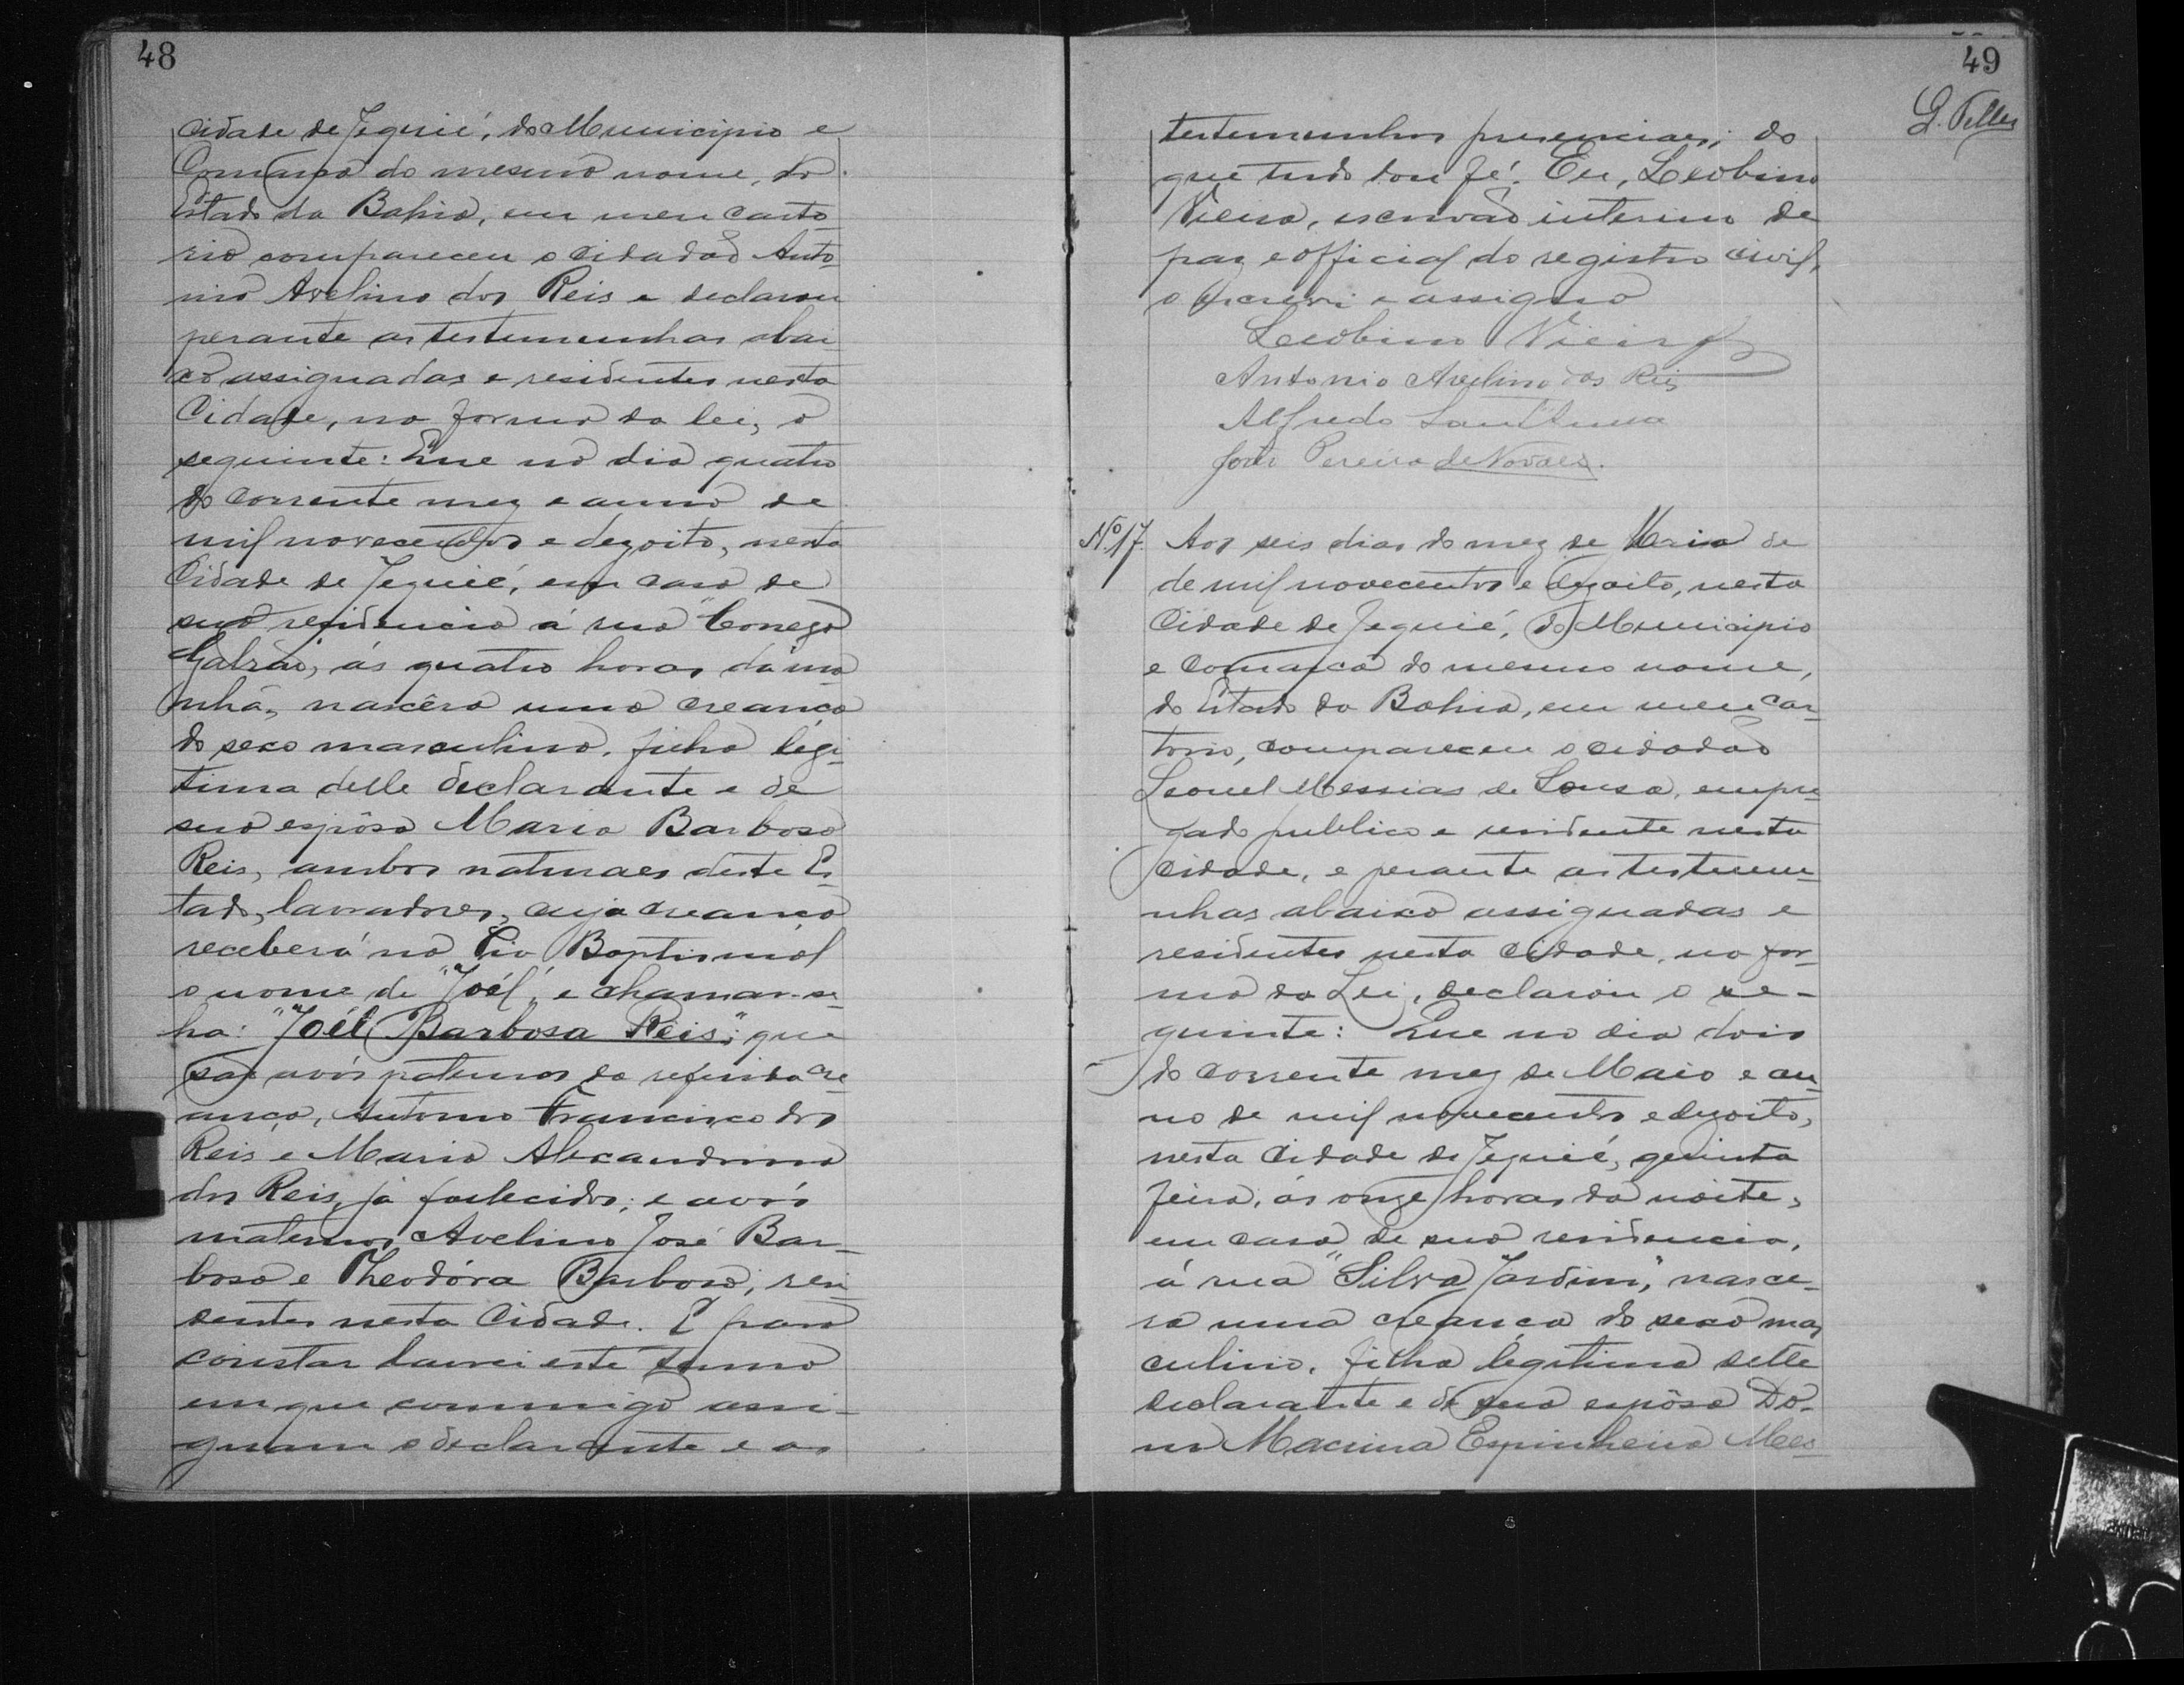 48
Cidade de Jequié, do Municipio e
Comarca do mesmo nome, do
Estado da Bahia, em meu carto
rio compareceu o cidadão Anto
nio Avelino dos Reis e declarou
perante as testemunhas abai
xo assignadas e residentes nesta
Cidade, na forma da lei, o
seguinte: Que no dia quatro
do corrente mez e anno de
mil novecentos e dezoito, nesta
Cidade de Jequié, em casa de
sua residencia á rua "Conego
Galrão, ás quatro horas da ma
nhã, nascêra uma creança
do sexo masculino, filha legi
tima delle declarante e de
sua espôsa Maria Barbosa
Reis, ambos naturaes deste Es
tado, lavradores, cuja creança
receberá na Pia Baptismal
o nome de "Joél" e chamar-se
ha: "Joél Barbosa Reis"; que
são avós paternos da referida cre
ança, Antonio Francisco dos
Reis e Maria Alexandrina
dos Reis, já fallecidos; e avós
maternos Avelino José Bar-
bosa e Theodóra Barbosa, resi
dentes nesta Cidade. E para
constar lavrei este termo
em que commigo assi-
gnam o declarante e as
49
G. Telles
testemunhas presenciaes; do
que tudo dou fé. Eu, Leobino
Vieira, escrivão interino de
paz e official do registro civil,
o escrevi e assigno
Leobino Vieira
Antonio Avelino dos Reis
Alfredo Sant'Anna
João Pereira de Novaes.
Nº 17. Aos seis dias do mez de Maio de
de mil novecentos e dezoito, nesta
Cidade de Jequié, do Municipio
e Comarca do mesmo nome,
do Estado da Bahia, em meu car-
torio, compareceu o cidadão
Leonel Messias de Sousa, empre-
gado publico e residente nesta
cidade, e perante as testemu-
nhas abaixo assignadas e
residentes nesta cidade, na for-
ma da Lei, declarou o se-
guinte: Que no dia dois
do corrente mez de Maio e an-
no de mil novecentos e dezoito,
nesta Cidade de Jequié, quinta
feira, ás onze horas da noite,
em casa de sua residencia,
á rua "Silva Jardim", nasce-
ra uma creança do sexo mas
culino, filha legitima delle
declarante e de sua espôsa Do-
na Macrina Espinheira Mes-